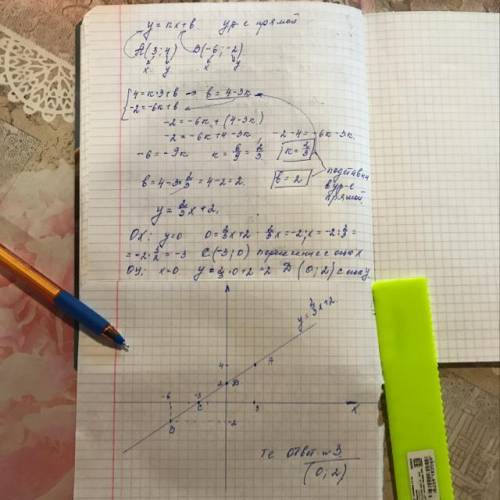 y = кx+в ур-е прямой
A(3;4) B(-6;-2)
x y x y
4=к·3+в → в=4-3к
-2=-6к+в
-2=-6к+(4-3к)
-2=-6к+4-3к, -2-4=-6к-3к
-6=-9к к=6/9=2/3 к=2/3
в=4-3·2/3=4-2=2. в=2 подставим
в ур-е
прямой
y=2/3x+2.
OX: y=0 0=2/3x+2 -2/3x=-2; x=-2:2/3=
=-2·3/2=-3 C(-3;0) пересечение с осью x
ОУ: x=0 y=2/3·0+2=2 D(0;2) с осью y
y=2/3x+2
4 A
2 D
-6 -3 C 3 X
B -2
те ответ №3
(0;2)